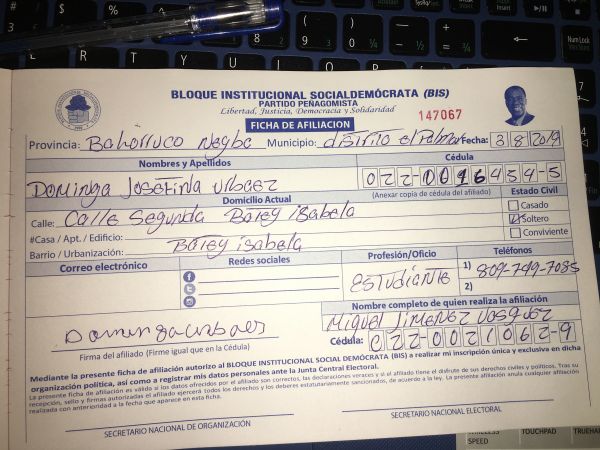 BLOQUE INSTITUCIONAL SOCIALDEMÓCRATA (BIS)
PARTIDO PEÑAGOMISTA
Libertad, Justicia, Democracia y Solidaridad
FICHA DE AFILIACION
147067
Provincia: Bahorruco Neyba Municipio: distrito el Palmar Fecha: 3 8 2019
Nombres y Apellidos Cédula
Dominga Josefina Urbaez 022-0096454-5
Domicilio Actual (Anexar copia de cédula del afiliado) Estado Civil
Calle: Calle Segunda Batey isabela Casado
Soltero
#Casa / Apt. / Edificio: Conviviente
Barrio / Urbanización: Batey isabela
Correo electrónico Redes sociales Profesión/Oficio Teléfonos
Estudiante 1) 809-749-7085
2)
Nombre completo de quien realiza la afiliación
Miguel Jimenez Vasquez
Dominga urbaez Cédula: 022-0021062-9
Firma del afiliado (Firme igual que en la Cédula)
Mediante la presente ficha de afiliación autorizo al BLOQUE INSTITUCIONAL SOCIAL DEMÓCRATA (BIS) a realizar mi inscripción única y exclusiva en dicha
organización política, así como a registrar mis datos personales ante la Junta Central Electoral.
La presente ficha de afiliación es válida si los datos ofrecidos por el afiliado son correctos, las declaraciones veraces y si el afiliado tiene el disfrute de sus derechos civiles y políticos. Tras su
recepción, sello y firmas autorizadas el afiliado ejercerá todos los derechos y los deberes estatutariamente sancionados, de acuerdo a la ley. La presente afiliación anula cualquier afiliación
realizada con anterioridad a la fecha que aparece en esta ficha.
SECRETARIO NACIONAL DE ORGANIZACIÓN SECRETARIO NACIONAL ELECTORAL
SPEED TOUCHPAD